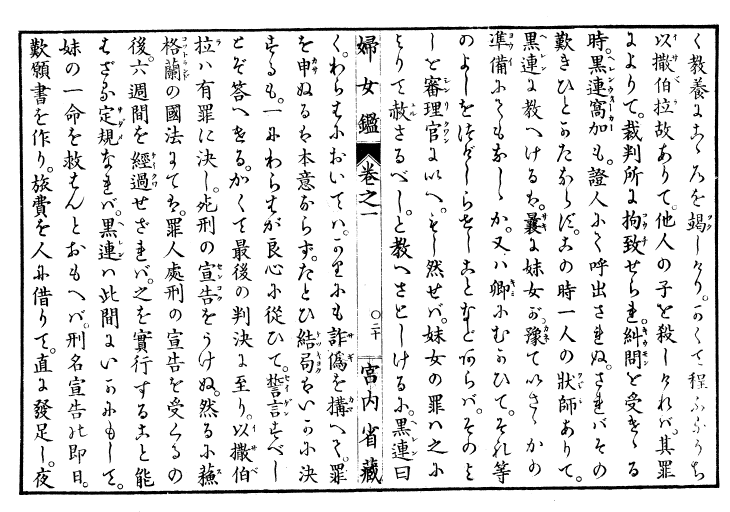 く教養に心を竭しけり。かくて程ふるうち
以撒伯拉故ありて。他人の子を殺しければ。其罪
によりて。裁判所に拘致せられ。糾問を受くる
時。黒連窩加も。證人にて呼出されぬ。さればその
歎きひとかたならず。この時一人の狀師ありて。
黒連に教へけるは。曩に妹女が豫ていさゝかの
準備にてもなしゝか。又ハ卿にむかひて。それ等
のよしをほのめらせしことなどあらバ。そのよ
しを審理官にいへ。もし然せば。妹女の罪ハ之に
よりて赦さるべし。と教へさとしけるに。黒連曰
婦女鑑 卷之一 〇二十 宮内省藏
く。わらはにおいてハ。かりにも詐偽を搆へて。罪
を申ぬるは本意ならず。たとひ結局はいかに決
するも。一にわらはが良心に從ひて。誓言すべし
とぞ答へける。かくて最後の判決に至り。以撒伯
拉ハ有罪に決し。死刑の宣告をうけぬ。然るに蘇
格蘭の國法にては。罪人處刑の宣告を受くるの
後。六週間を經過せざれば。之を實行すること能
はざる定規なれば。黒連ハ此間にいかにもして。
妹の一命を救はんとおもへば。刑名宣告の即日。
歎願書を作り。旅費を人に借りて。直に發足し。夜